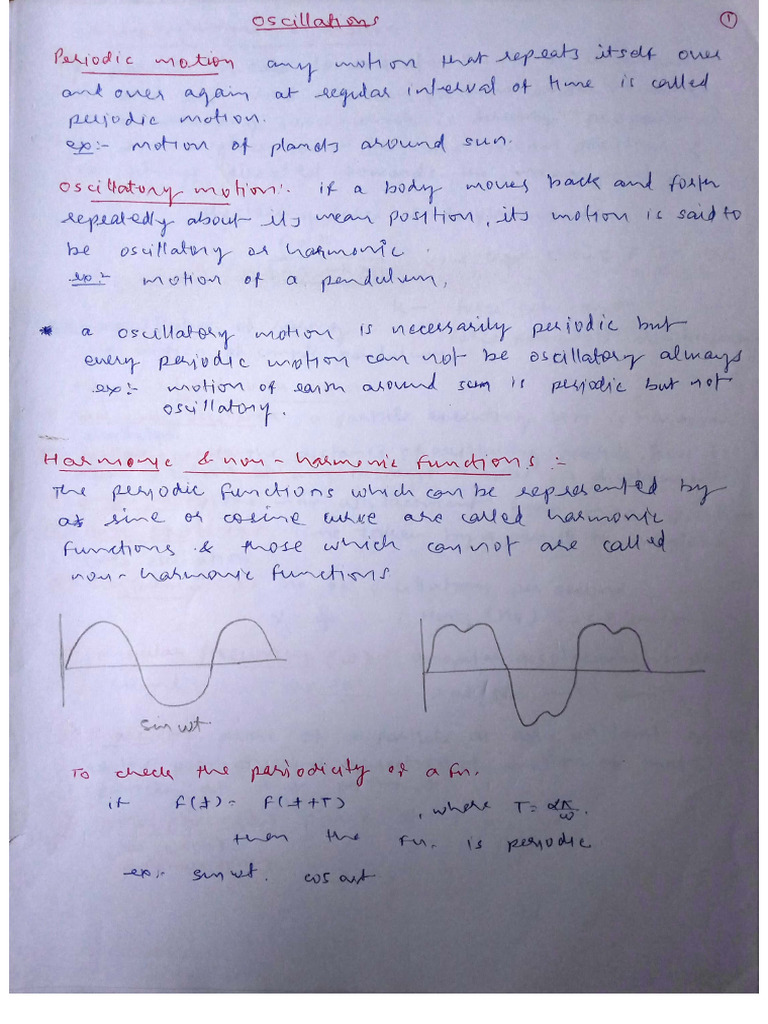 Oscillations
1
Periodic motion any motion that repeats itself over
and over again at regular interval of time is called
periodic motion.
ex:- motion of planets around sun.
Oscillatory motion:. if a body moves back and forth
repeatedly about its mean position, its motion is said to
be oscillatory or harmonic.
ex:- motion of a pendulum,
* a oscillatory motion is necessarily periodic but
every periodic motion can not be oscillatory always
ex:- motion of earth around sun is periodic but not
oscillatory.
Harmonic & non-harmonic functions :-
The periodic functions which can be represented by
a sine or cosine curve are called harmonic
functions & those which cannot are called
non-harmonic functions
sin wt
To check the periodicity of a fn.
if f(t) = f(t+T) , where T = 2π/ω.
then the fn. is periodic
ex:- sin wt. cos wt